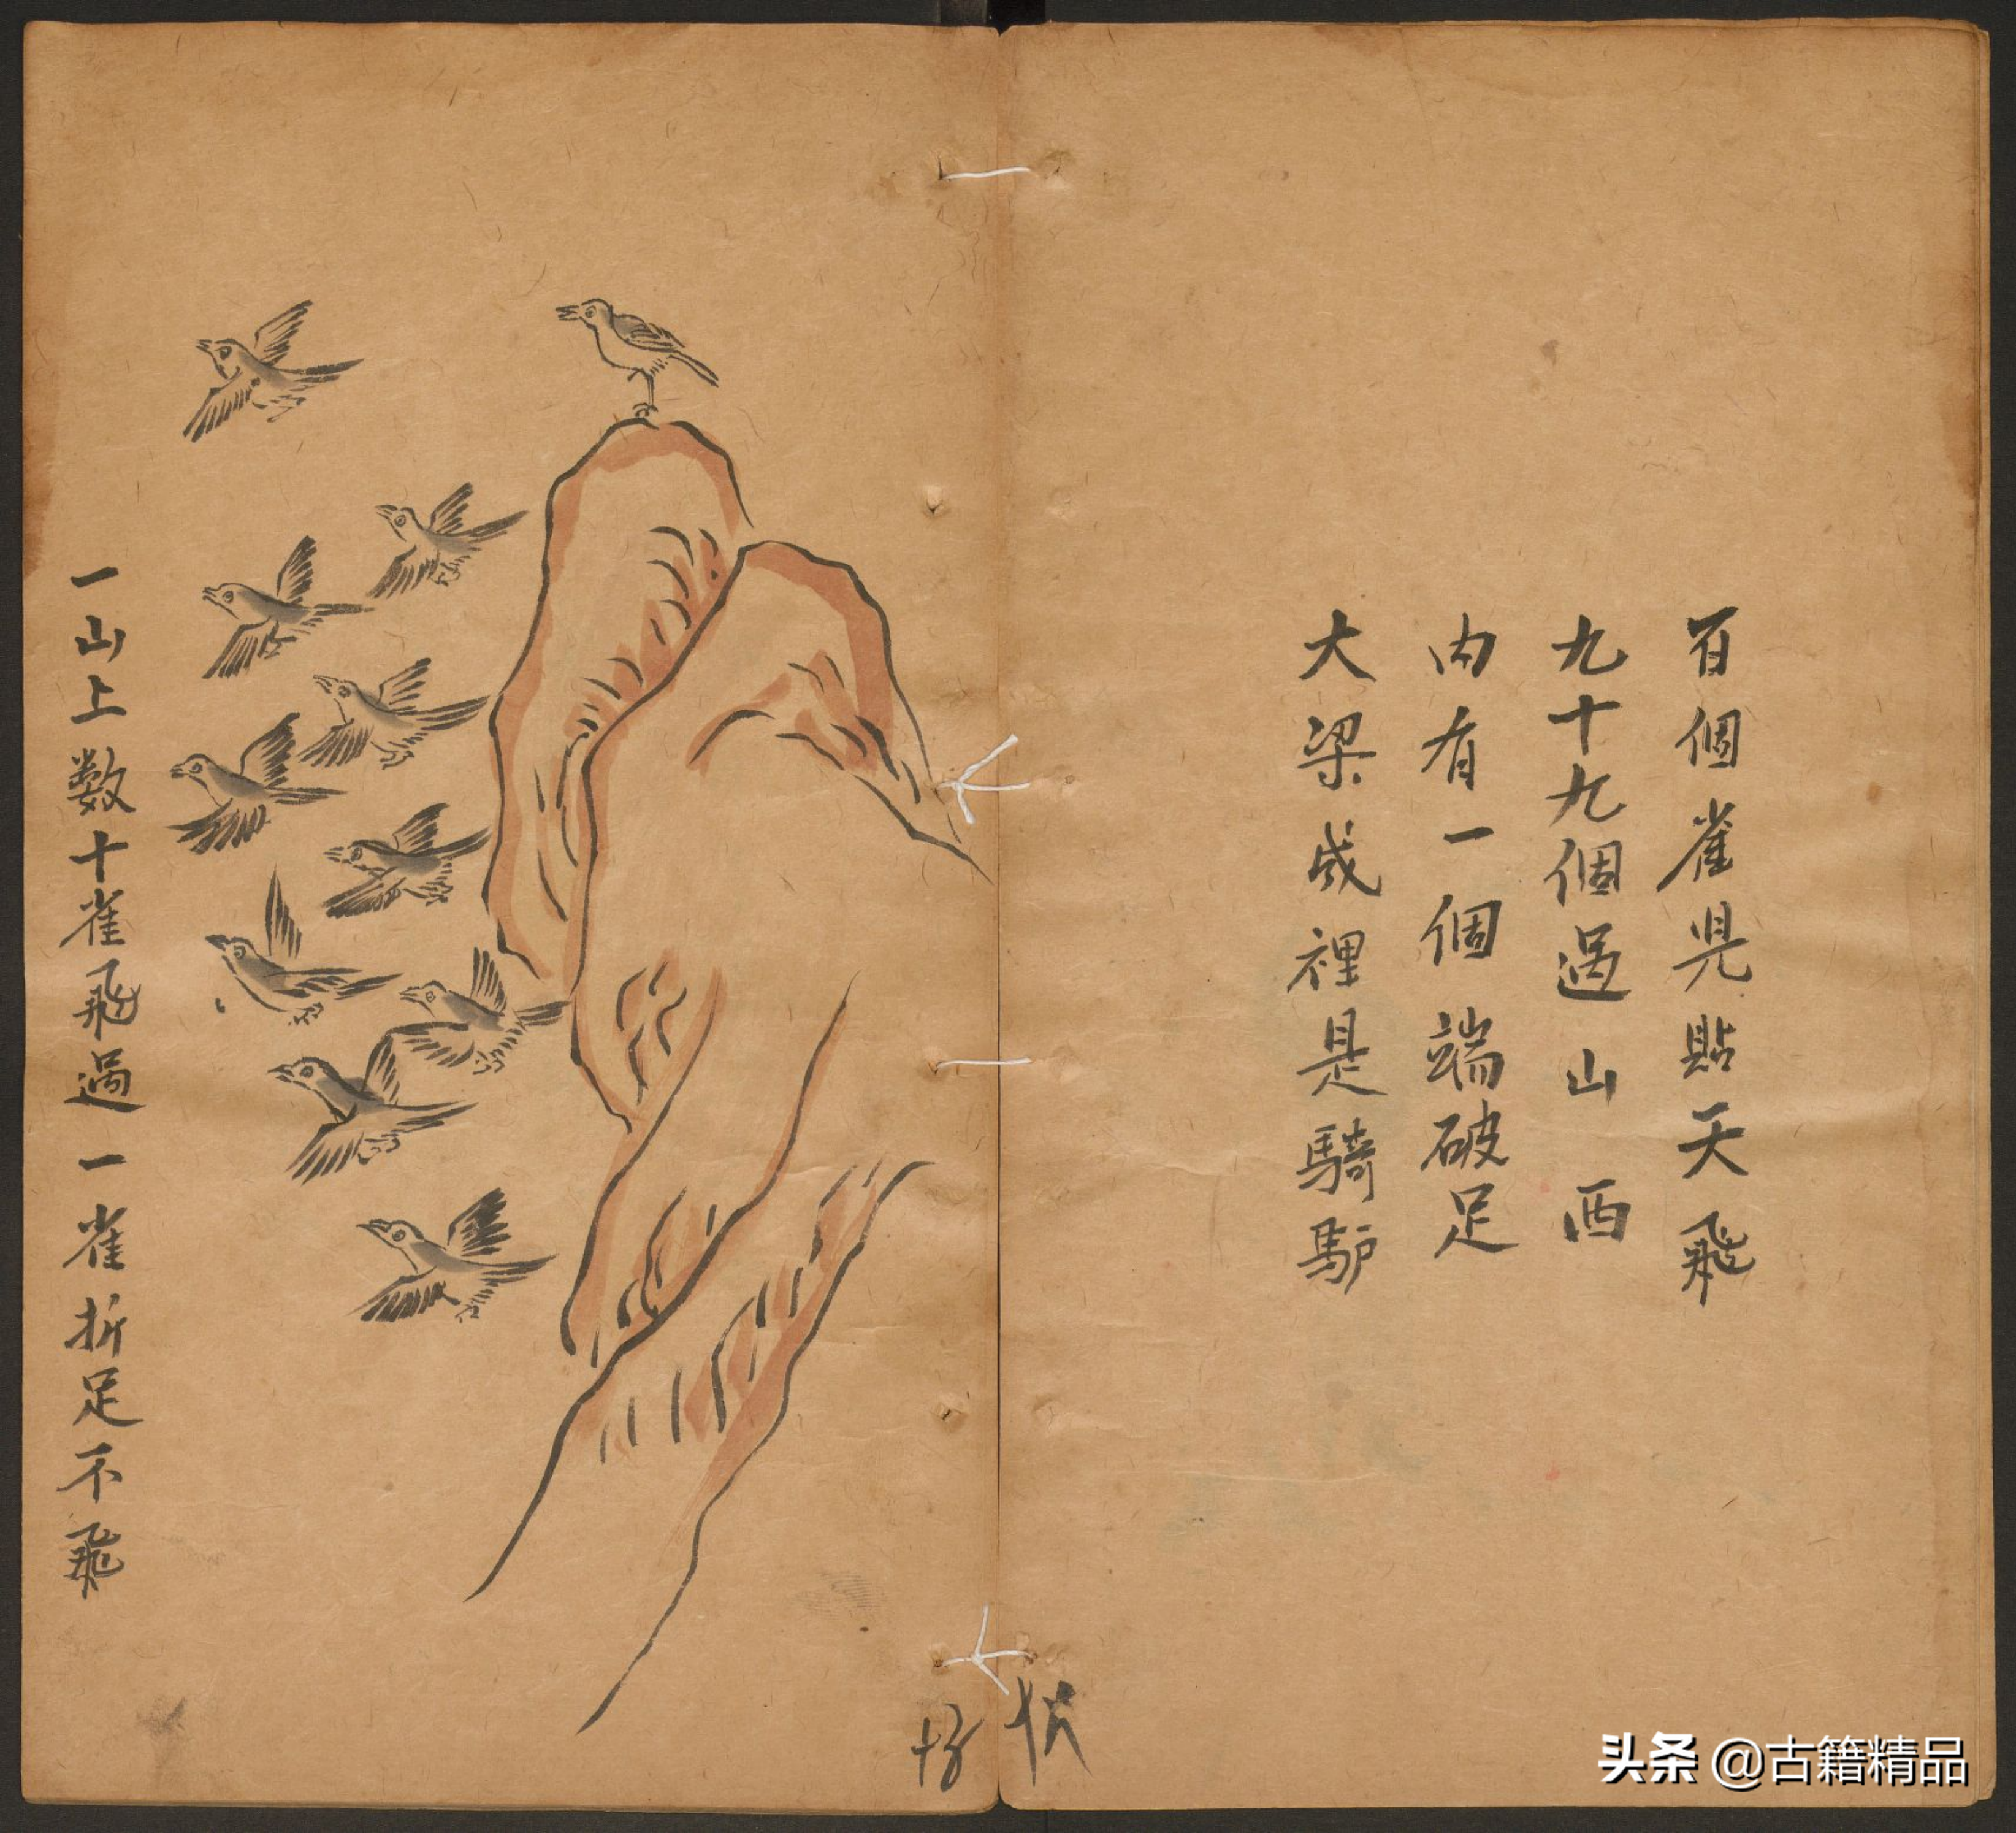 百個雀児貼天飛
九十九個過山西
内有一個端破足
大梁成裡是騎馿
一山上数十雀飛過一雀折足不飛
头条 @古籍精品